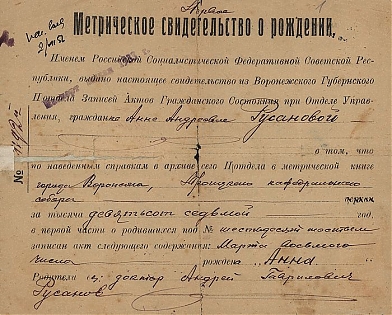 Первое
Метрическое свидетельство о рождении.
Именем Российской Социалистической Федеративной Советской Рес-
публики, выдано настоящее свидетельство из Воронежского Губернского
П отдела Записей Актов Гражданского Состояния при Отделе Управ-
ления, гражданке Анне Андреевне Русановой
в том, что
по наведенным справкам в архиве сего П отдела в метрической книге
города Воронежа, Троицкого кафедрального
собора церкви
за тысяча девятьсот седьмой год,
в первой части о родившихся под № шестьдесят шестым
записан акт следующего содержания: Марта восьмого
числа рождена „Анна“
Родители ея: доктор Андрей Гаврилович
Русанов
№